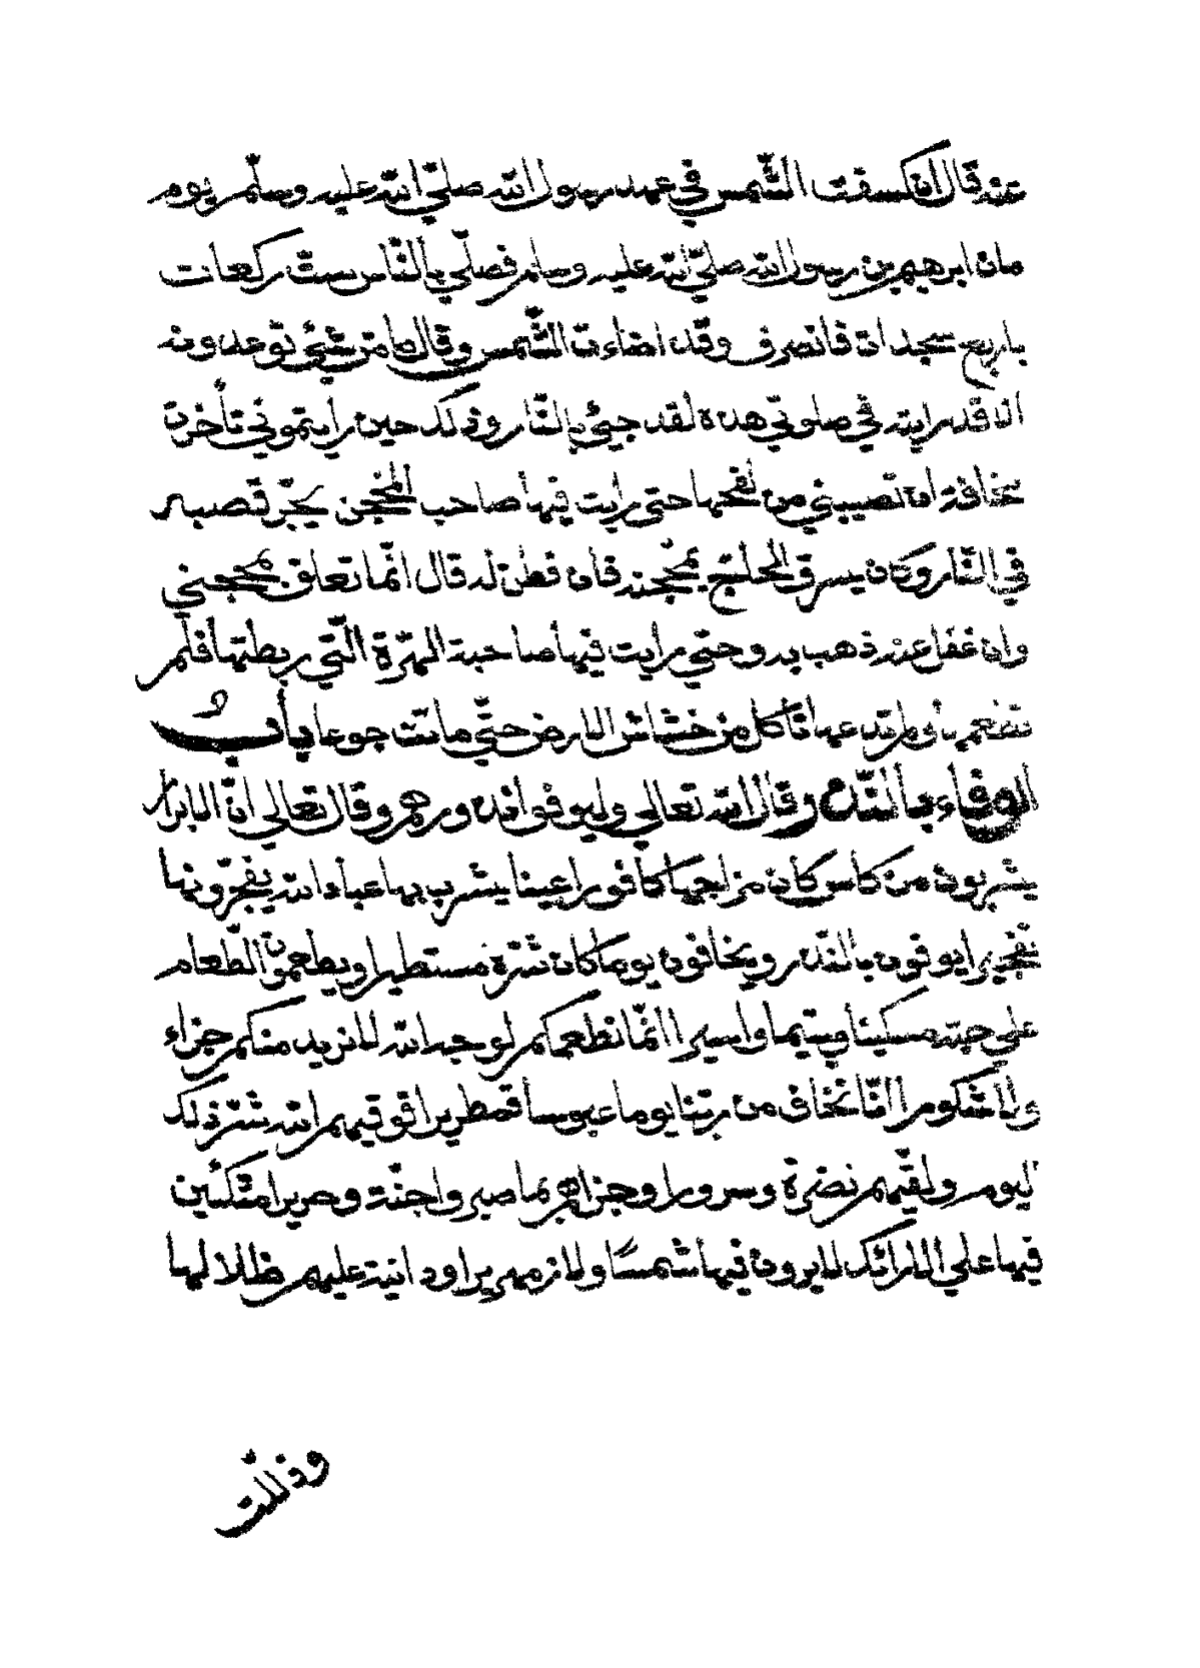 عنه قال انكسفت الشّمس في عهد رسول الله صلّي الله عليه وسلّم يوم
مات ابرهيم بن رسول الله صلّي الله عليه وسلم فصلّي بالنّاس ستّ ركعات
باربع سجدات فانصرف وقد اضاءت الشّمس وقال ما من شيئ توعدونه
الا قد رايته في صلوتي هذه لقد جيئ بالنّار وذلك حين رايتموني تأخرت
مخافة ان تصيبني من لفحها حتي رأيت فيها صاحب المحجن يجرّ قصبه
في النّار وكان يسرق الحاج بمحجنه فان فطن له قال انّما تعلق بمحجني
وان غفل عنه ذهب به وحتي رايت فيها صاحبة الهرّة الّتي ربطتها فلم
تطعمها ولم تدعها تأكل من خشاش الارض حتّي ماتت جوعا بابٌ
الوفاء بالنّذر وقال الله تعالي وليوفوا نذورهم وقال تعالي انّ الابرار
يشربون من كأس كان مزاجها كافورا عينا يشرب بها عباد الله يفجّرونها
تفجيرا يوفون بالنّذر ويخافون يوما كان شرّه مستطيرا ويطعمون الطّعام
علي حبّه مسكينا ويتيما واسيرا انّما نطعمكم لوجه الله لا نريد منكم جزاء
ولا شكورا انّا نخاف من ربّنا يوما عبوسا قمطريرا فوقيهم الله شرّ ذلك
اليوم ولقّيهم نضرة وسرورا وجزاهم بما صبروا جنّة وحريرا متكئين
فيها علي الارائك لا يرون فيها شمسًا ولا زمهريرا ودانية عليهم ظلالها
وذلّلت